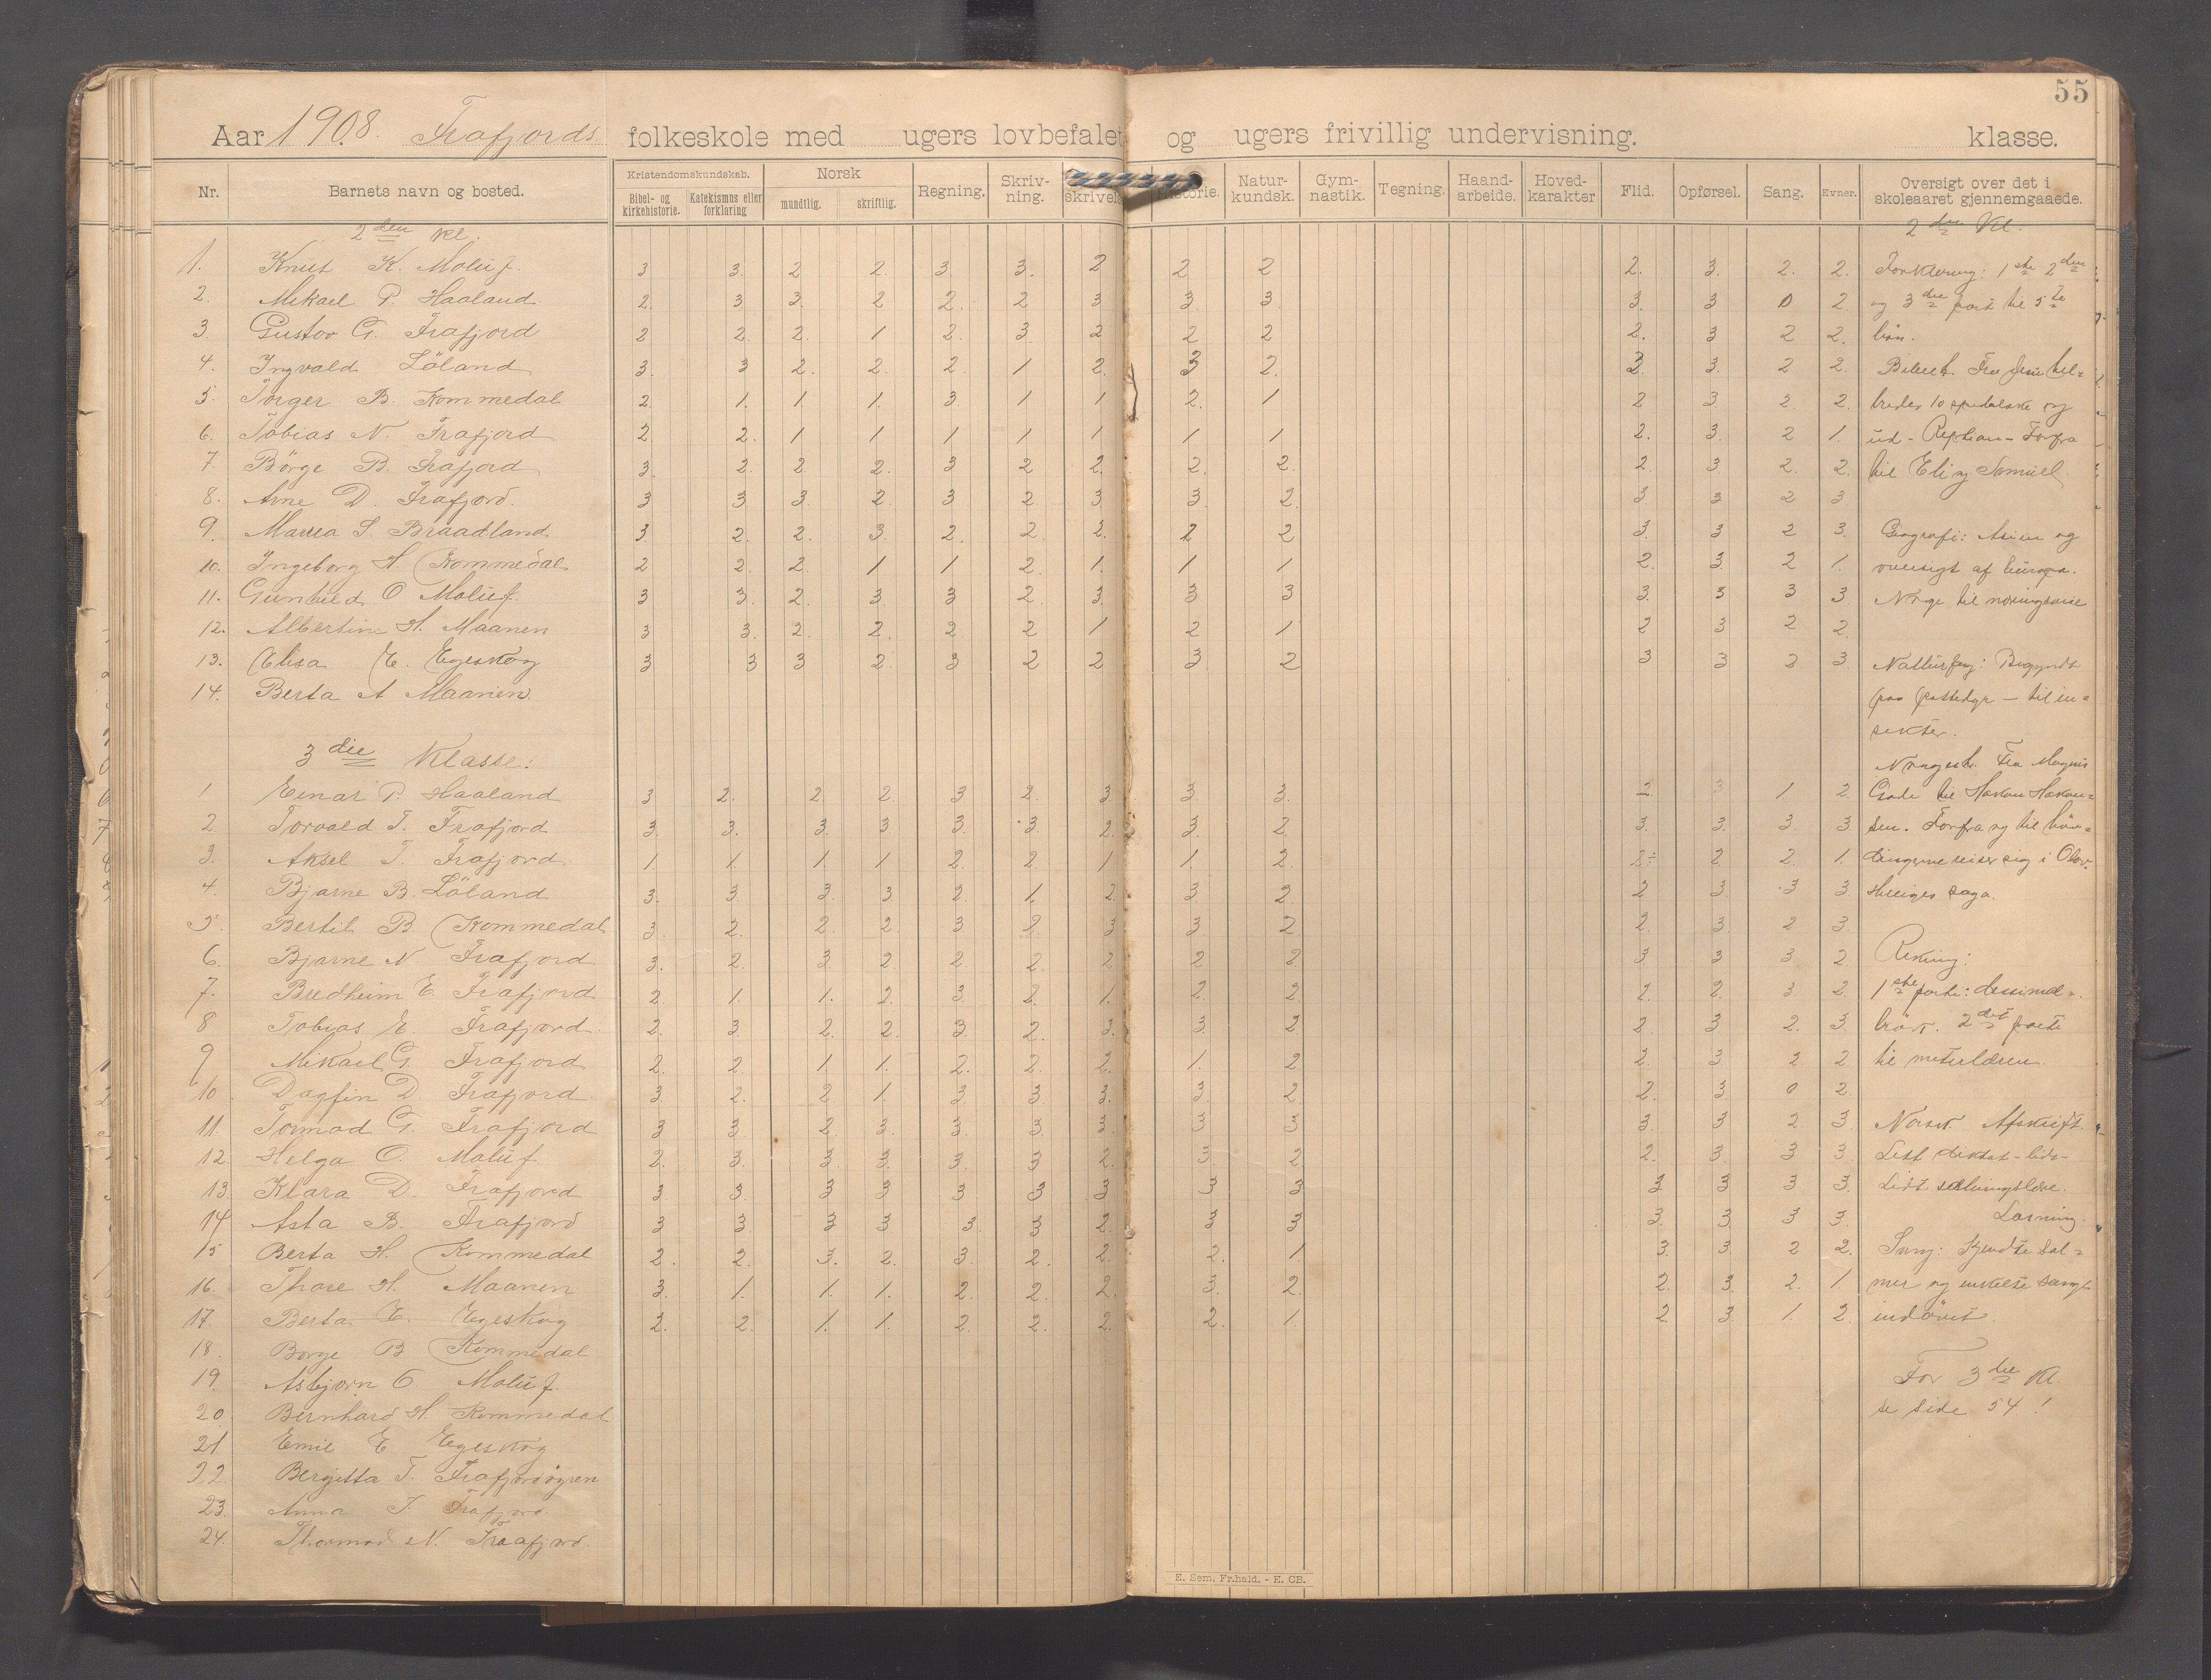 55
Aar 1908. Frafjords folkeskole med ugers lovbefalet og ugers frivillig undervisning. klasse.
Nr. Barnets navn og bosted. Kristendomskundskab. Bibel- og kirkehistorie. Katekismus eller forklaring Norsk mundtlig. skriftlig. Regning. Skriv-ning. skrivels Historie. Natur-kundsk. Gym-nastik. Tegning. Haand-arbeide. Hoved-karakter Flid. Opførsel. Sang. Evner. Oversigt over det i skoleaaret gjennemgaaede.
2den Kl. 2den Kl.
1. Knut K. Moluf. 3 3. 2 2. 3. 3. 2 2 2 2. 3. 2. 2. Forklaring: 1ste 2den
2. Mikael P. Haaland 2. 3 3. 2 2. 2 3 3 3. 3. 3 0 2 og 3die part til 5te
3. Gustov G. Frafjord 2 2. 2. 1 2. 3. 2 2 2 2. 3 2 2. bön.
4. Ingvald Löland 3. 3 2. 2. 2. 1 2. 3 2. 2. 3. 2 2.
5. Torger B. Kommedal 2. 1. 1. 1. 3. 1 1 2. 1 2 3 2 2. bredes 10 spedalske og
6. Tobias N. Frafjord 2 2. 1 1 1 1 1 1 1 2. 3. 2 1. ud - Forfra
7. Börge B. Frafjord 3. 2. 2 2. 3 2 2. 2. 2. 2. 3 2. 2. til Eli og Samuel.
8. Arne D. Frafjord. 3 3 3 2. 3 2. 3 3. 2. 3 3 2 3
9. Marea S Braadland 3. 2. 2. 3. 2. 2. 2. 2 2 3. 3 2 3. Geografi: Asien og
10. Ingeborg H. Kommedal 2 2. 2. 1 1 2. 1. 1 1 2. 3. 2 1. oversigt af Europa.
11. Gunhild O Moluf. 3 3. 2. 3. 3 2. 3. 3 3 3. 3 3 3 Norge til næringsveie
12. Albertine H. Maanen 3 3. 2. 2. 2 2 1 2 1 2 3 2 2
13. Elisa E. Egeskog 3 3 3 2. 3 2 2 3. 2 3 3 3 3. Naturfag: Begyndt
14. Berta A Maanen. paa pattedyr - til in=
sekter.
3die Klasse. Norgesh. Fra Magnus
1 Einar P. Haaland 3 2. 2. 2. 3 2. 3. 3. 3. 2. 3 1 2. Gode til Hakon Hakon=
2 Torvald T. Frafjord 3. 3. 3. 3. 3. 3. 2. 3. 2. 3. 3. 3. 3 sen. Forfra og til bön=
3. Aksel T. Frafjord 1. 1. 1. 1 2. 2. 1 1 2. 2÷ 2. 2. 1. derne reiser sig i Olav
4. Bjarne B. Löland 3. 3. 3. 3 2. 1. 2. 3. 2. 2 3. 3 3. Helliges saga.
5. Bertil B Kommedal 3. 2. 2. 2. 3 2. 3 3. 2 2. 3. 2 3.
6. Bjarne N. Frafjord 3. 2. 3. 2. 2. 2. 2 2 2. 3. 3 3 2
7. Bredheim E. Frafjord 2. 1. 1. 2. 3. 2. 1. 2. 2. 2. 2. 3. 2. 1ste parti: desimal-
8 Tobias E. Frafjord. 2. 3. 2. 2. 3. 2. 3. 3 2. 2. 3. 2. 3. brök. 2det parti
9 Mikael G. Frafjord 2. 2. 1. 1. 2. 2. 2. 1. 2. 2. 3. 2 2
10 Dagfin D. Frafjord. 3. 2. 2. 1. 3. 3. 3. 3. 2. 2. 3. 0 2.
11. Tormod G. Frafjord 3 3. 2. 3. 3. 3. 3. 3 3 3. 3 2 3. Norsk. Afskrift.
12. Helga O. Moluf 2. 3. 3. 3. 3. 3 2. 3. 2 2. 3. 3 3 Lett diktat -
13. Klara D. Frafjord 3 3. 3 3 3 3 3 3 3 3 3 3 3. Lidt sætningslære.
14 Asta B. Frafjord 3 3 3 3. 3. 3 2. 3 3 3. 3. 3 3. Læsning.
15 Berta H. Kommedal 2. 2. 3. 2. 3. 2. 2. 2. 1 3. 3. 2 2. Sang: Kjendte sal=
16. Thore H. Maanen 3. 1. 1. 1. 2. 2. 2. 3. 2. 2. 3. 2. 1 mer og enkelte sange
17. Berta E. Egeskog 2. 2. 1. 1. 2. 2. 2. 2. 1. 2. 3. 1. 2. indövet.
18. Borge B Kommedal
19. Asbjørn O Moluf. For 3die Kl.
20 Bernhard H. Kommedal se side 54!
21 Emil E Egeskog
22. Bergitta T.
23. Anna T. Frafjord.
24. Thormod N. Fraafjord.
E. Sem, Fr.hald. - E. CB.